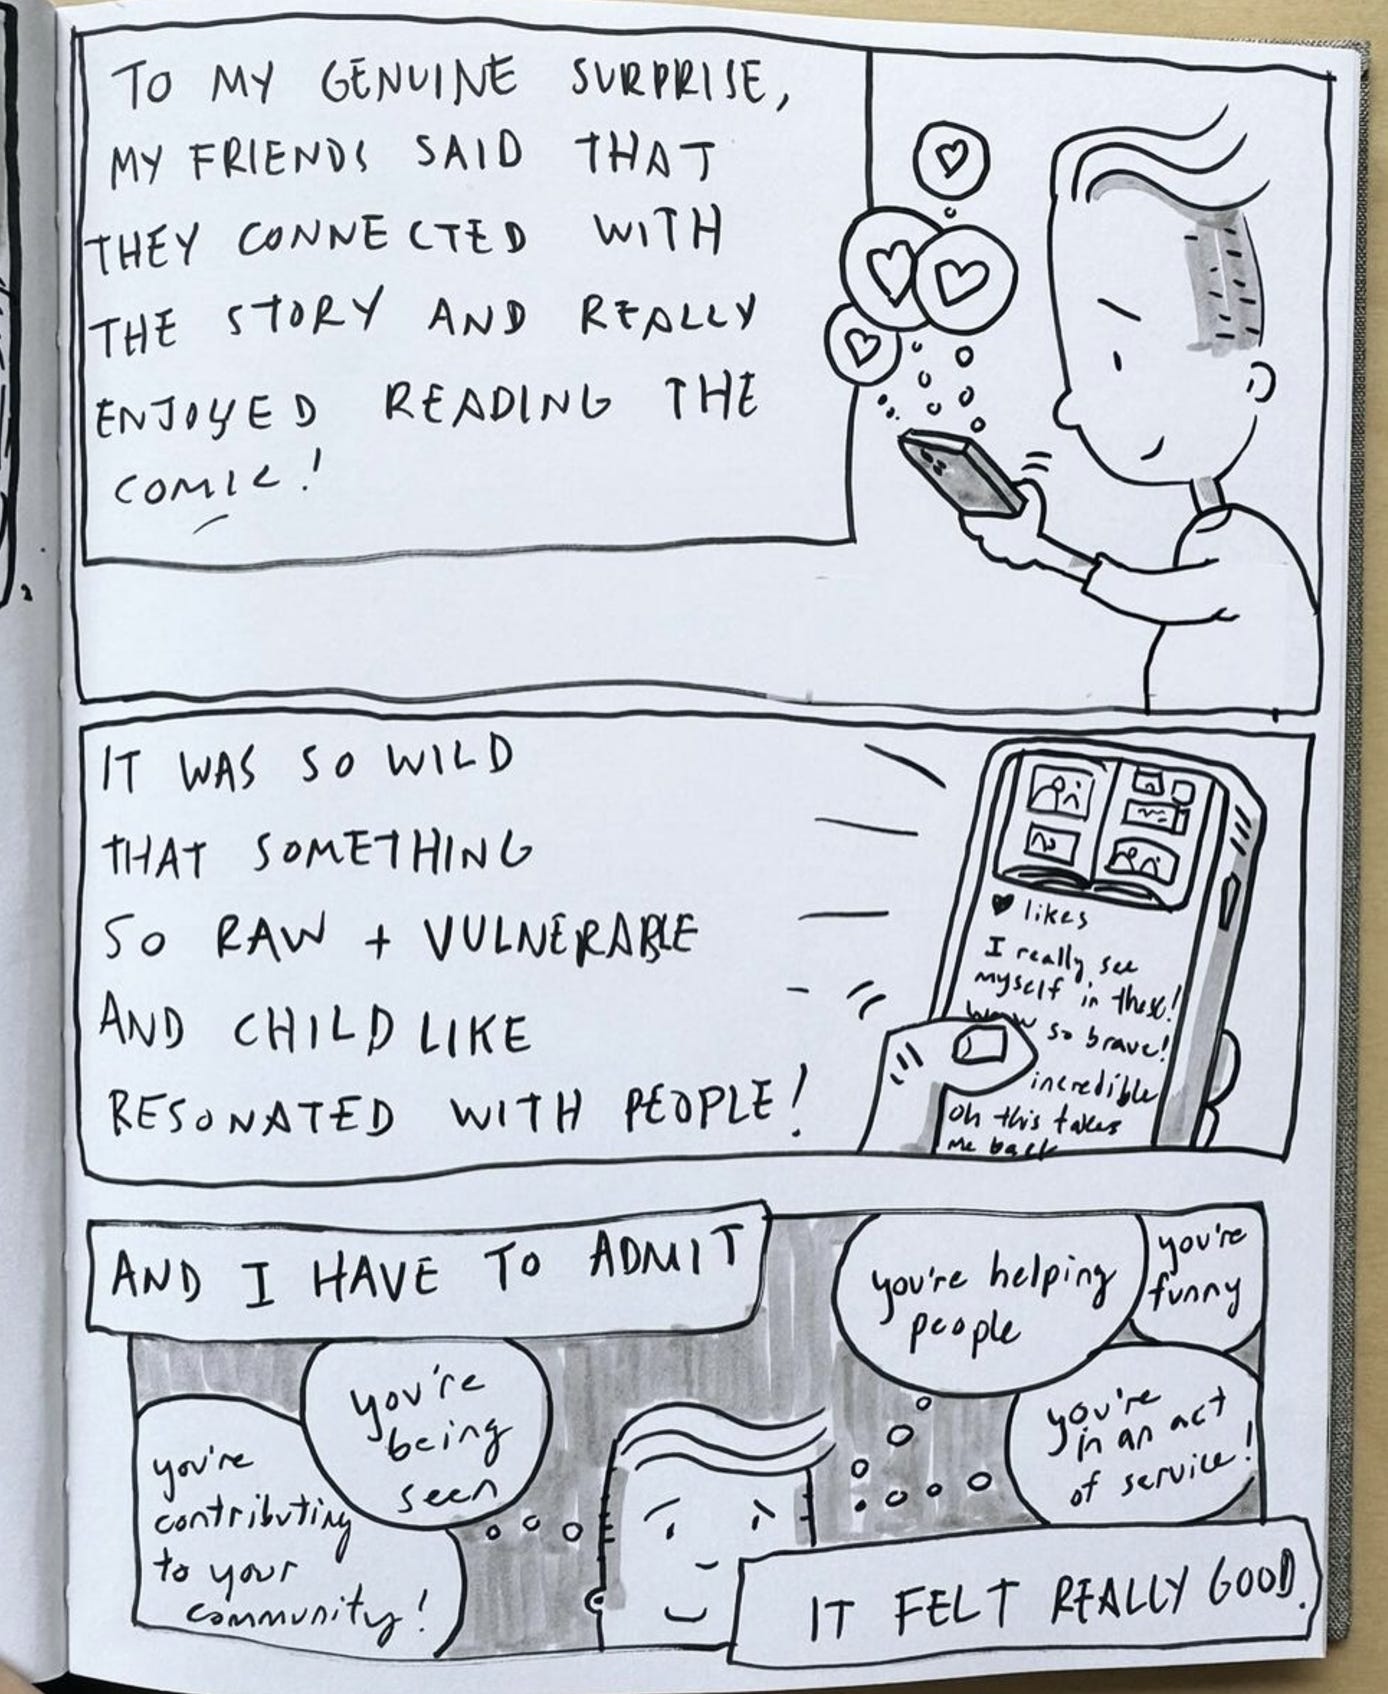 TO MY GENUINE SURPRISE,
MY FRIENDS SAID THAT
THEY CONNECTED WITH
THE STORY AND REALLY
ENJOYED READING THE
COMIC!
IT WAS SO WILD
THAT SOMETHING
SO RAW + VULNERABLE
AND CHILDLIKE
RESONATED WITH PEOPLE!
♥ likes
I really see
myself in these!
wow so brave!
incredible
oh this takes
me back
AND I HAVE TO ADMIT
you're
contributing
to your
community!
you're
being
seen
you're helping
people
you're
funny
you're
in an act
of service!
IT FELT REALLY GOOD.